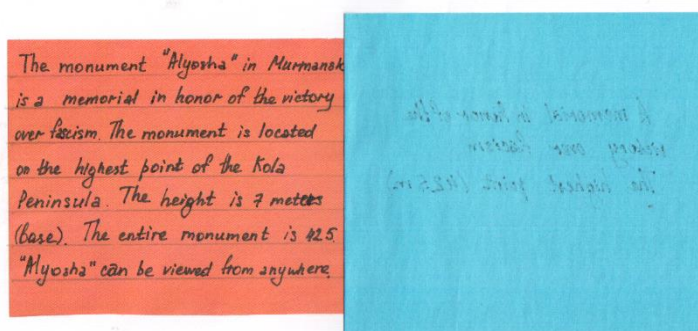 The monument "Alyosha" in Murmansk
is a memorial in honor of the victory
over fascism. The monument is located
on the highest point of the Kola
Peninsula. The height is 7 meters
(base). The entire monument is 42.5.
"Alyosha" can be viewed from anywhere.
A memorial in honor of the
victory over fascism
The highest point (42.5 m)